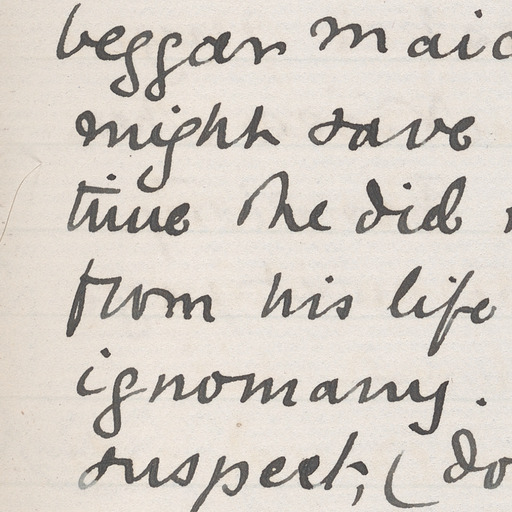 beggar maid
might save
time she did
from his life
ignomany.
suspect, (do